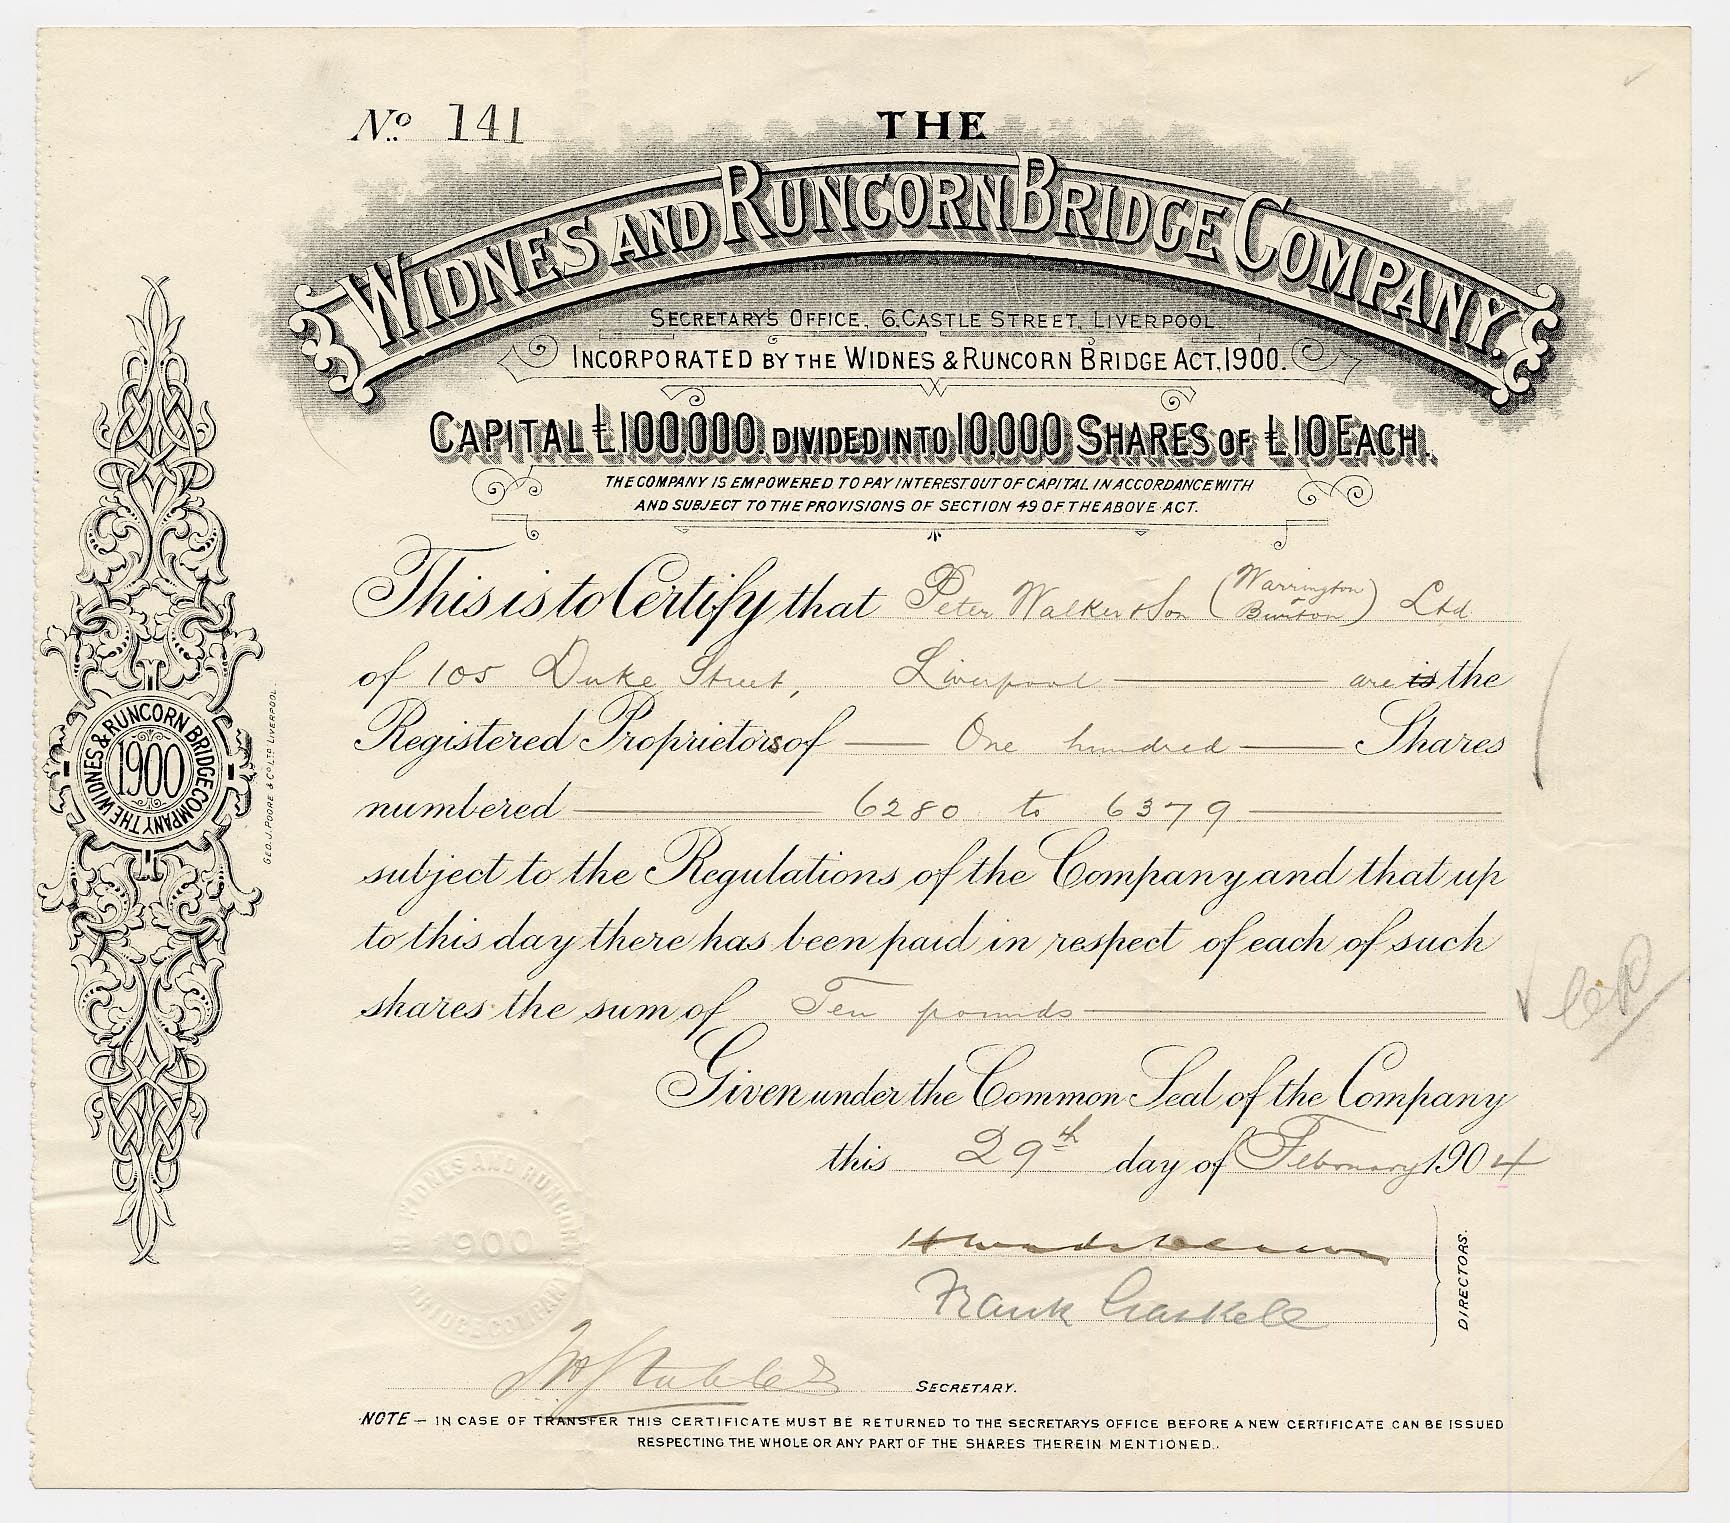 No. 141
THE
WIDNES AND RUNCORN BRIDGE COMPANY.
SECRETARY'S OFFICE, 6, CASTLE STREET, LIVERPOOL.
INCORPORATED BY THE WIDNES & RUNCORN BRIDGE ACT, 1900.
CAPITAL £100,000. DIVIDED INTO 10,000 SHARES OF £10 EACH.
THE COMPANY IS EMPOWERED TO PAY INTEREST OUT OF CAPITAL IN ACCORDANCE WITH
AND SUBJECT TO THE PROVISIONS OF SECTION 49 OF THE ABOVE ACT.
This is to Certify that Peter Walker & Son (Warrington & Burton) Ltd
of 105 Duke Street, Liverpool are is the
Registered Proprietors of One hundred Shares
numbered 6280 to 6379
subject to the Regulations of the Company and that up
to this day there has been paid in respect of each of such
shares the sum of Ten pounds
Given under the Common Seal of the Company
this 29th day of February 1904
Frank Gaskell
DIRECTORS.
SECRETARY.
NOTE – IN CASE OF TRANSFER THIS CERTIFICATE MUST BE RETURNED TO THE SECRETARYS OFFICE BEFORE A NEW CERTIFICATE CAN BE ISSUED
RESPECTING THE WHOLE OR ANY PART OF THE SHARES THEREIN MENTIONED.
THE WIDNES & RUNCORN BRIDGE COMPANY
1900
GEO. J. POORE & CO LTD LIVERPOOL.
WIDNES AND RUNCORN
1900
BRIDGE COMPANY